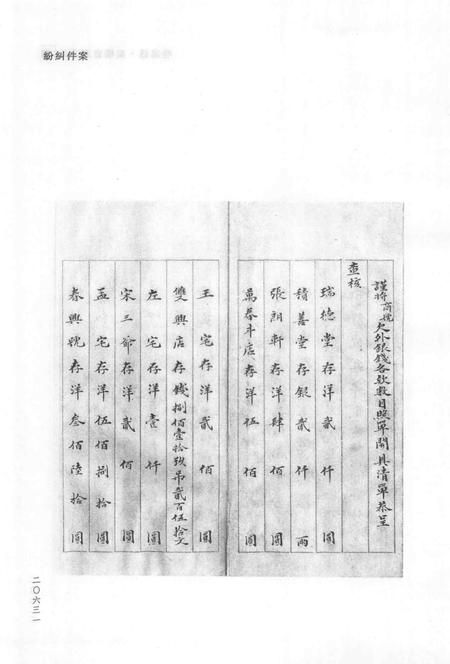 紛糾件案
謹將商號欠外銀錢各款數目照單開具清單恭呈
查核
瑞德堂存洋貳仟圓
積善堂存銀貳仟兩
張朗軒存洋肆佰圓
萬泰斗店存洋伍佰圓
王宅存洋貳佰圓
雙興店存錢捌佰壹拾玖吊貳百伍拾文
左宅存洋壹仟圓
宋三爺存洋貳佰圓
孟宅存洋伍佰捌拾圓
春興號存洋叁佰陸拾圓
二〇六三一